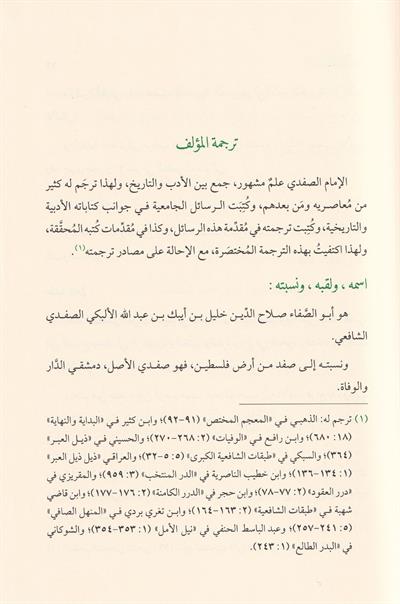 ترجمة المؤلف
الإمام الصفدي علمٌ مشهور، جمع بين الأدب والتاريخ، ولهذا ترجَم له كثير
من مُعاصريه ومَن بعدهم، وكُتِبَت الرسائل الجامعية في جوانب كتاباته الأدبية
والتاريخية، وكُتِبت ترجمته في مُقدّمة هذه الرسائل، وكذا في مُقدّمات كُتبه المُحقَّقة،
ولهذا اكتفيتُ بهذه الترجمة المُختصَرة، مع الإحالة على مصادر ترجمته(١).
اسمه، ولقبه، ونسبته:
هو أبو الصَّفاء صلاح الدّين خليل بن أيبك بن عبد الله الألبكي الصفدي
الشافعي.
ونسبته إلى صفد من أرض فلسطين، فهو صفدي الأصل، دمشقي الدَّار
والوفاة.
(١) ترجم له: الذهبي في «المعجم المختص» (٩١-٩٢)؛ وابن كثير في «البداية والنهاية»
(١٨: ٦٨٠)؛ وابن رافع في «الوفيات» (٢: ٢٦٨-٢٧٠)؛ والحسيني في «ذيل العبر»
(٣٦٤)؛ والسبكي في «طبقات الشافعية الكبرى» (٥: ٥-٣٢)؛ والعراقي «ذيل ذيل العبر»
(١: ١٣٤-١٣٦)؛ وابن خطيب الناصرية في «الدر المنتخب» (٣: ٩٥٩)؛ والمقريزي في
«درر العقود» (٢: ٧٧-٧٨)؛ وابن حجر في «الدرر الكامنة» (٢: ١٧٦-١٧٧)؛ وابن قاضي
شهبة في «طبقات الشافعية» (٢: ١٦٣-١٦٤)؛ وابن تغري بردي في «المنهل الصافي»
(٥: ٢٤١-٢٥٧)؛ وعبد الباسط الحنفي في «نيل الأمل» (١: ٣٥٣-٣٥٤)؛ والشوكاني
في «البدر الطالع» (١: ٢٤٣).